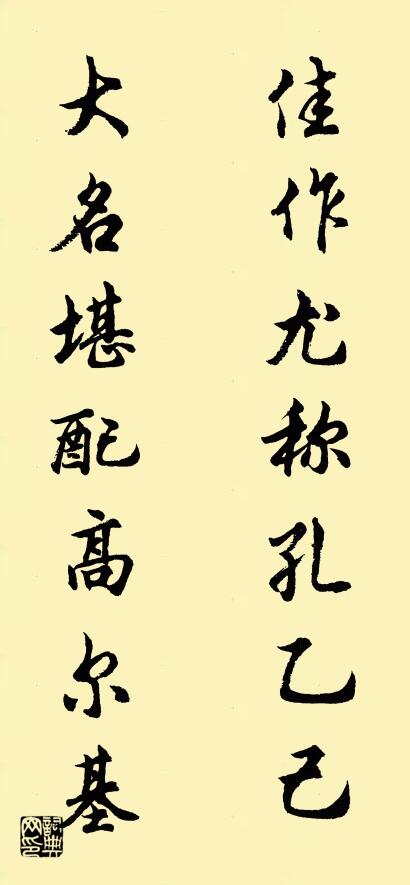 佳作尤称孔乙己
大名堪配高尔基